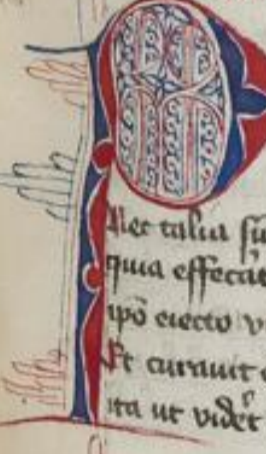 Nec talia su
quia effecat
ip̄o eiecto v
Et curauit e
ita ut vidēt